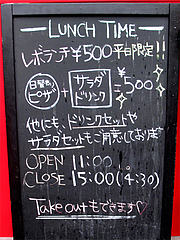 LUNCH TIME
レボランチ¥500 平日限定!!
日替わり
ピザ
+
サラダ
ドリンク
= ¥500
他にも、ドリンクセットや
サラダセットもご用意しております
OPEN 11:00
CLOSE 15:00 (14:30)
Take outもできます♡